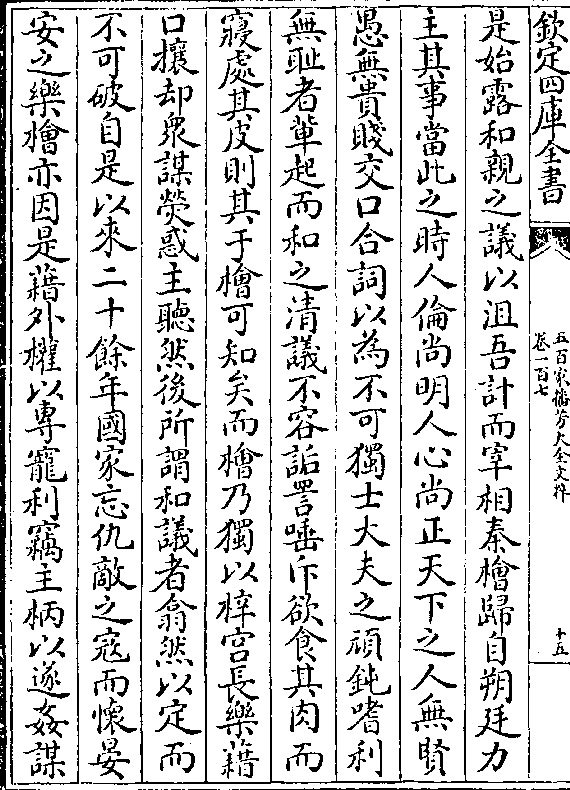 欽定四庫全書
五百家播芳大全文粹
卷一百七
十五
是始露和親之議以沮吾計而宰相秦檜歸自朔廷力
主其事當此之時人倫尚明人心尚正天下之人無賢
愚無貴賤交口合詞以為不可獨士大夫之頑鈍嗜利
無耻者輩起而和之清議不容詬詈唾斥欲食其肉而
寢處其皮則其于檜可知矣而檜乃獨以梓宮長樂藉
口攘却衆謀熒惑主聽然後所謂和議者翕然以定而
不可破自是以來二十餘年國家忘仇敵之寇而懷晏
安之樂檜亦因是藉外權以專寵利竊主柄以遂姦謀